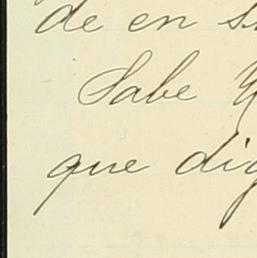 de en
Sabe
que